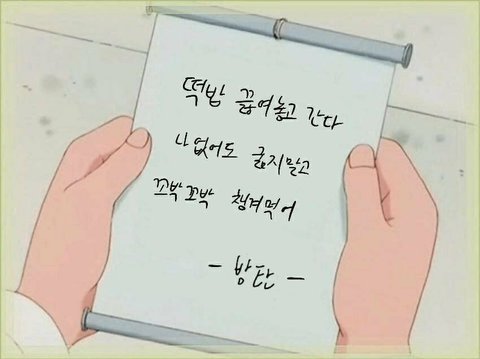 떡밥 끓여놓고 간다
나 없어도 굶지말고
꼬박꼬박 챙겨먹어
- 방탄 -